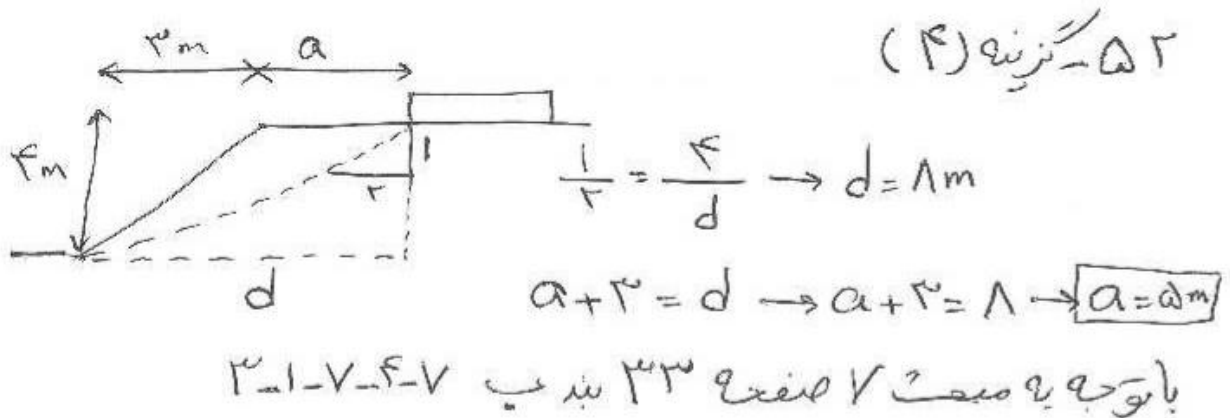 ۵۲-گزینه (۴)
۳m a
۴m ۱ ۲ d
۱/۲ = ۴/d → d = ۸m
a + ۳ = d → a + ۳ = ۸ → a = ۵m
با توجه به مبحث ۷ صفحه ۳۳ بند ب ۷-۴-۷-۱-۳